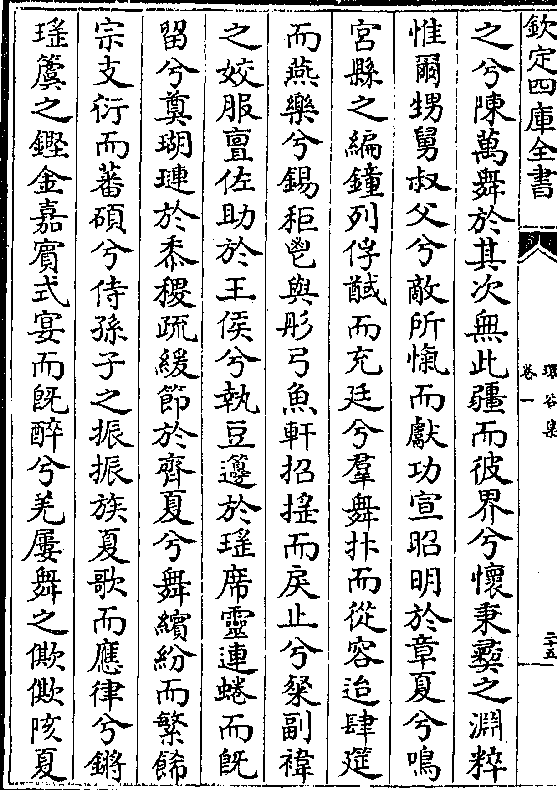 欽定四庫全書
環谷集
卷一
二十五
之兮陳萬舞於其次無此疆而彼界兮懷秉彞之淵粹
惟爾甥舅叔父兮敵所愾而獻功宣昭明於章夏兮鳴
宮縣之編鐘列俘馘而充廷兮羣舞抃而從容迨肆筵
而燕樂兮錫秬鬯與彤弓魚軒招搖而戾止兮粲副褘
之姣服亶佐助於王侯兮執豆籩於瑤席靈連蜷而旣
留兮奠瑚璉於黍稷疏緩節於齊夏兮舞繽紛而繁飾
宗支衍而蕃碩兮侍孫子之振振族夏歌而應律兮鏘
瑤簴之鏗金嘉賓式宴而旣醉兮羌屢舞之僛僛陔夏